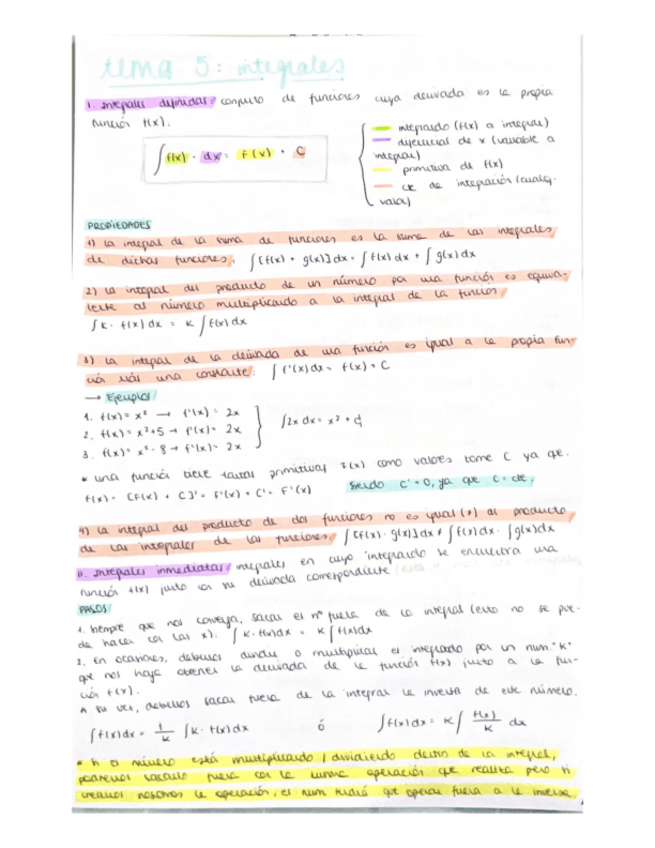 tema 5: integrales
I. Integrales definidas: conjunto de funciones cuya derivada es la propia
función f(x).
∫ f(x) · dx = F(x) + C
integrando (f(x) a integrar)
diferencial de x (variable a
integrar)
primitiva de f(x)
cte de integración (cualq.
valor)
PROPIEDADES
1) La integral de la suma de funciones es la suma de las integrales
de dichas funciones. ∫[f(x) + g(x)]dx = ∫f(x)dx + ∫g(x)dx
2) La integral del producto de un número por una función es equiva-
lente al número multiplicando a la integral de la función
∫K · f(x)dx = K ∫f(x)dx
3) La integral de la derivada de una función es igual a la propia fun-
ción más una constante: ∫f'(x)dx = f(x) + C
→ Ejemplos
1. f(x) = x² → f'(x) = 2x
2. f(x) = x²+5 → f'(x) = 2x
3. f(x) = x² - 8 → f'(x) = 2x
∫2x dx = x² + C
* una función tiene tantas primitivas F(x) como valores tome C ya que:
f(x) = [F(x) + C]' = F'(x) + C' = F'(x)
siendo C' = 0, ya que C = cte.
4) La integral del producto de dos funciones no es igual (≠) al producto
de las integrales de las funciones. ∫[f(x) · g(x)]dx ≠ ∫f(x)dx · ∫g(x)dx
II. Integrales inmediatas: integrales en cuyo integrando se encuentra una
función f(x) junto con su derivada correspondiente
PASOS
1. siempre que nos convenga, sacar el nº fuera de la integral (esto no se pue-
de hacer con las x). ∫K · f(x)dx = K ∫f(x)dx
2. En ocasiones, debemos dividir o multiplicar el integrando por un num. "K"
que nos haga obtener la derivada de la función f(x) junto a la fun-
ción f(x).
A su vez, debemos sacar fuera de la integral la inversa de este número.
∫f(x)dx = 1/K ∫K · f(x)dx ó ∫f(x)dx = K ∫ f(x)/K dx
* si el número está multiplicando / dividiendo dentro de la integral,
podremos sacarlo fuera con la misma operación que realiza pero si
creamos nosotros la operación, el num tendrá que operar fuera a la inversa.